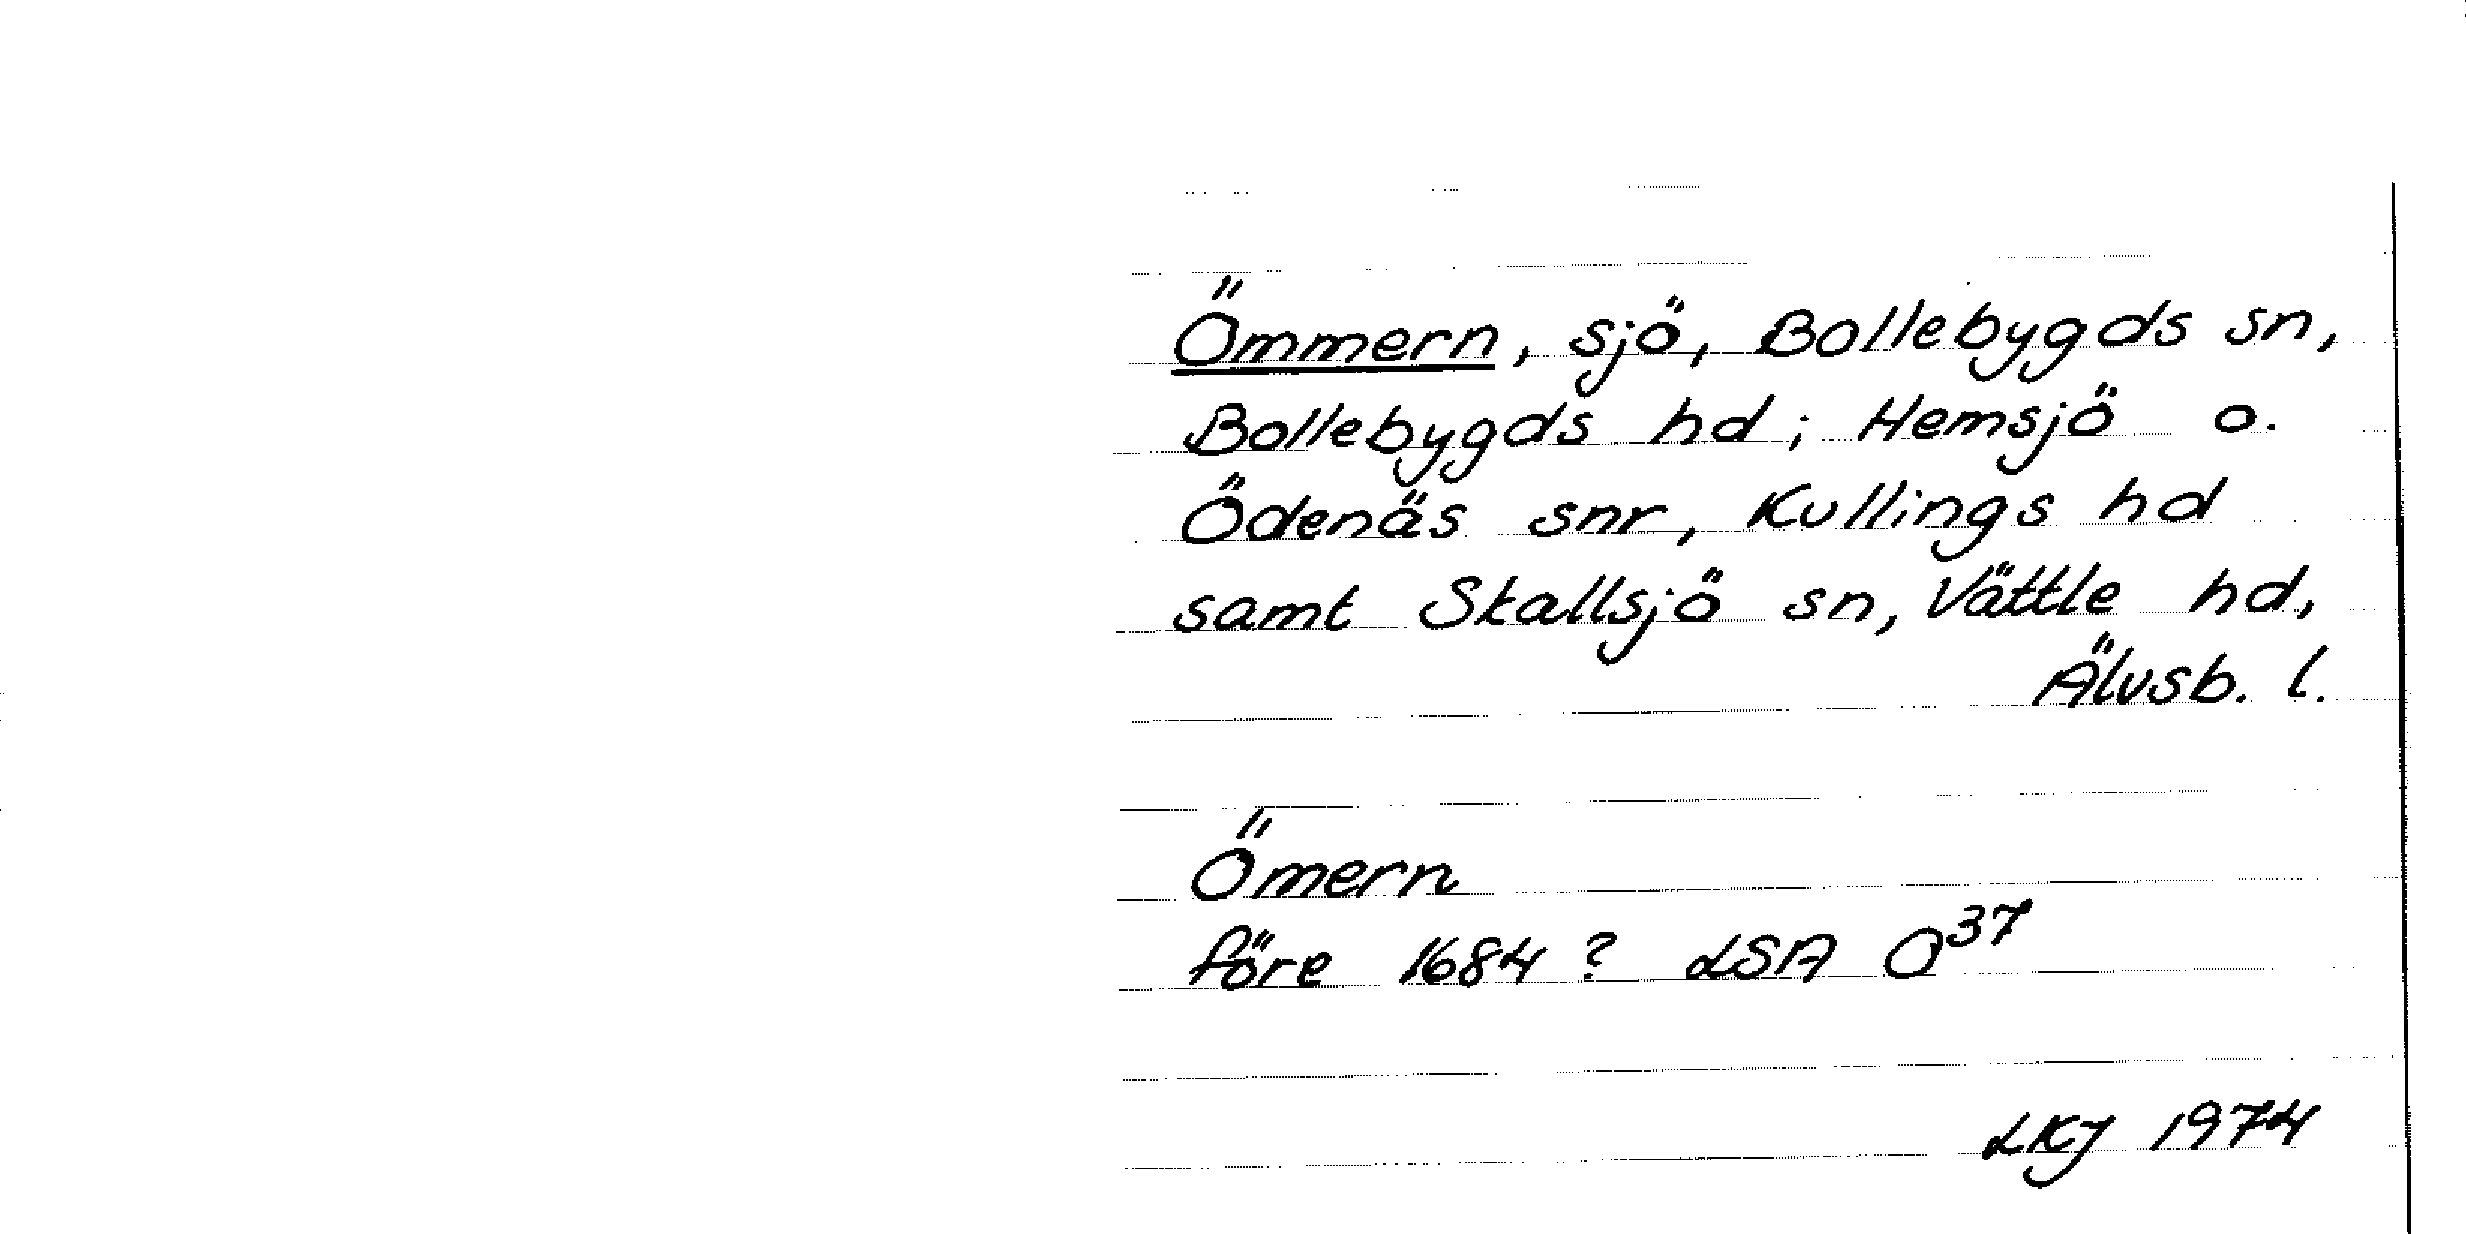 Ömmern, sjö, Bollebygds sn,
Bollebygds hd; Hemsjö o.
Ödenäs snr, Kullings hd
samt Skallsjö sn, Vättle hd,
Älvsb. l.
Ömern
före 1684? LSA O³⁷
LKJ 1974